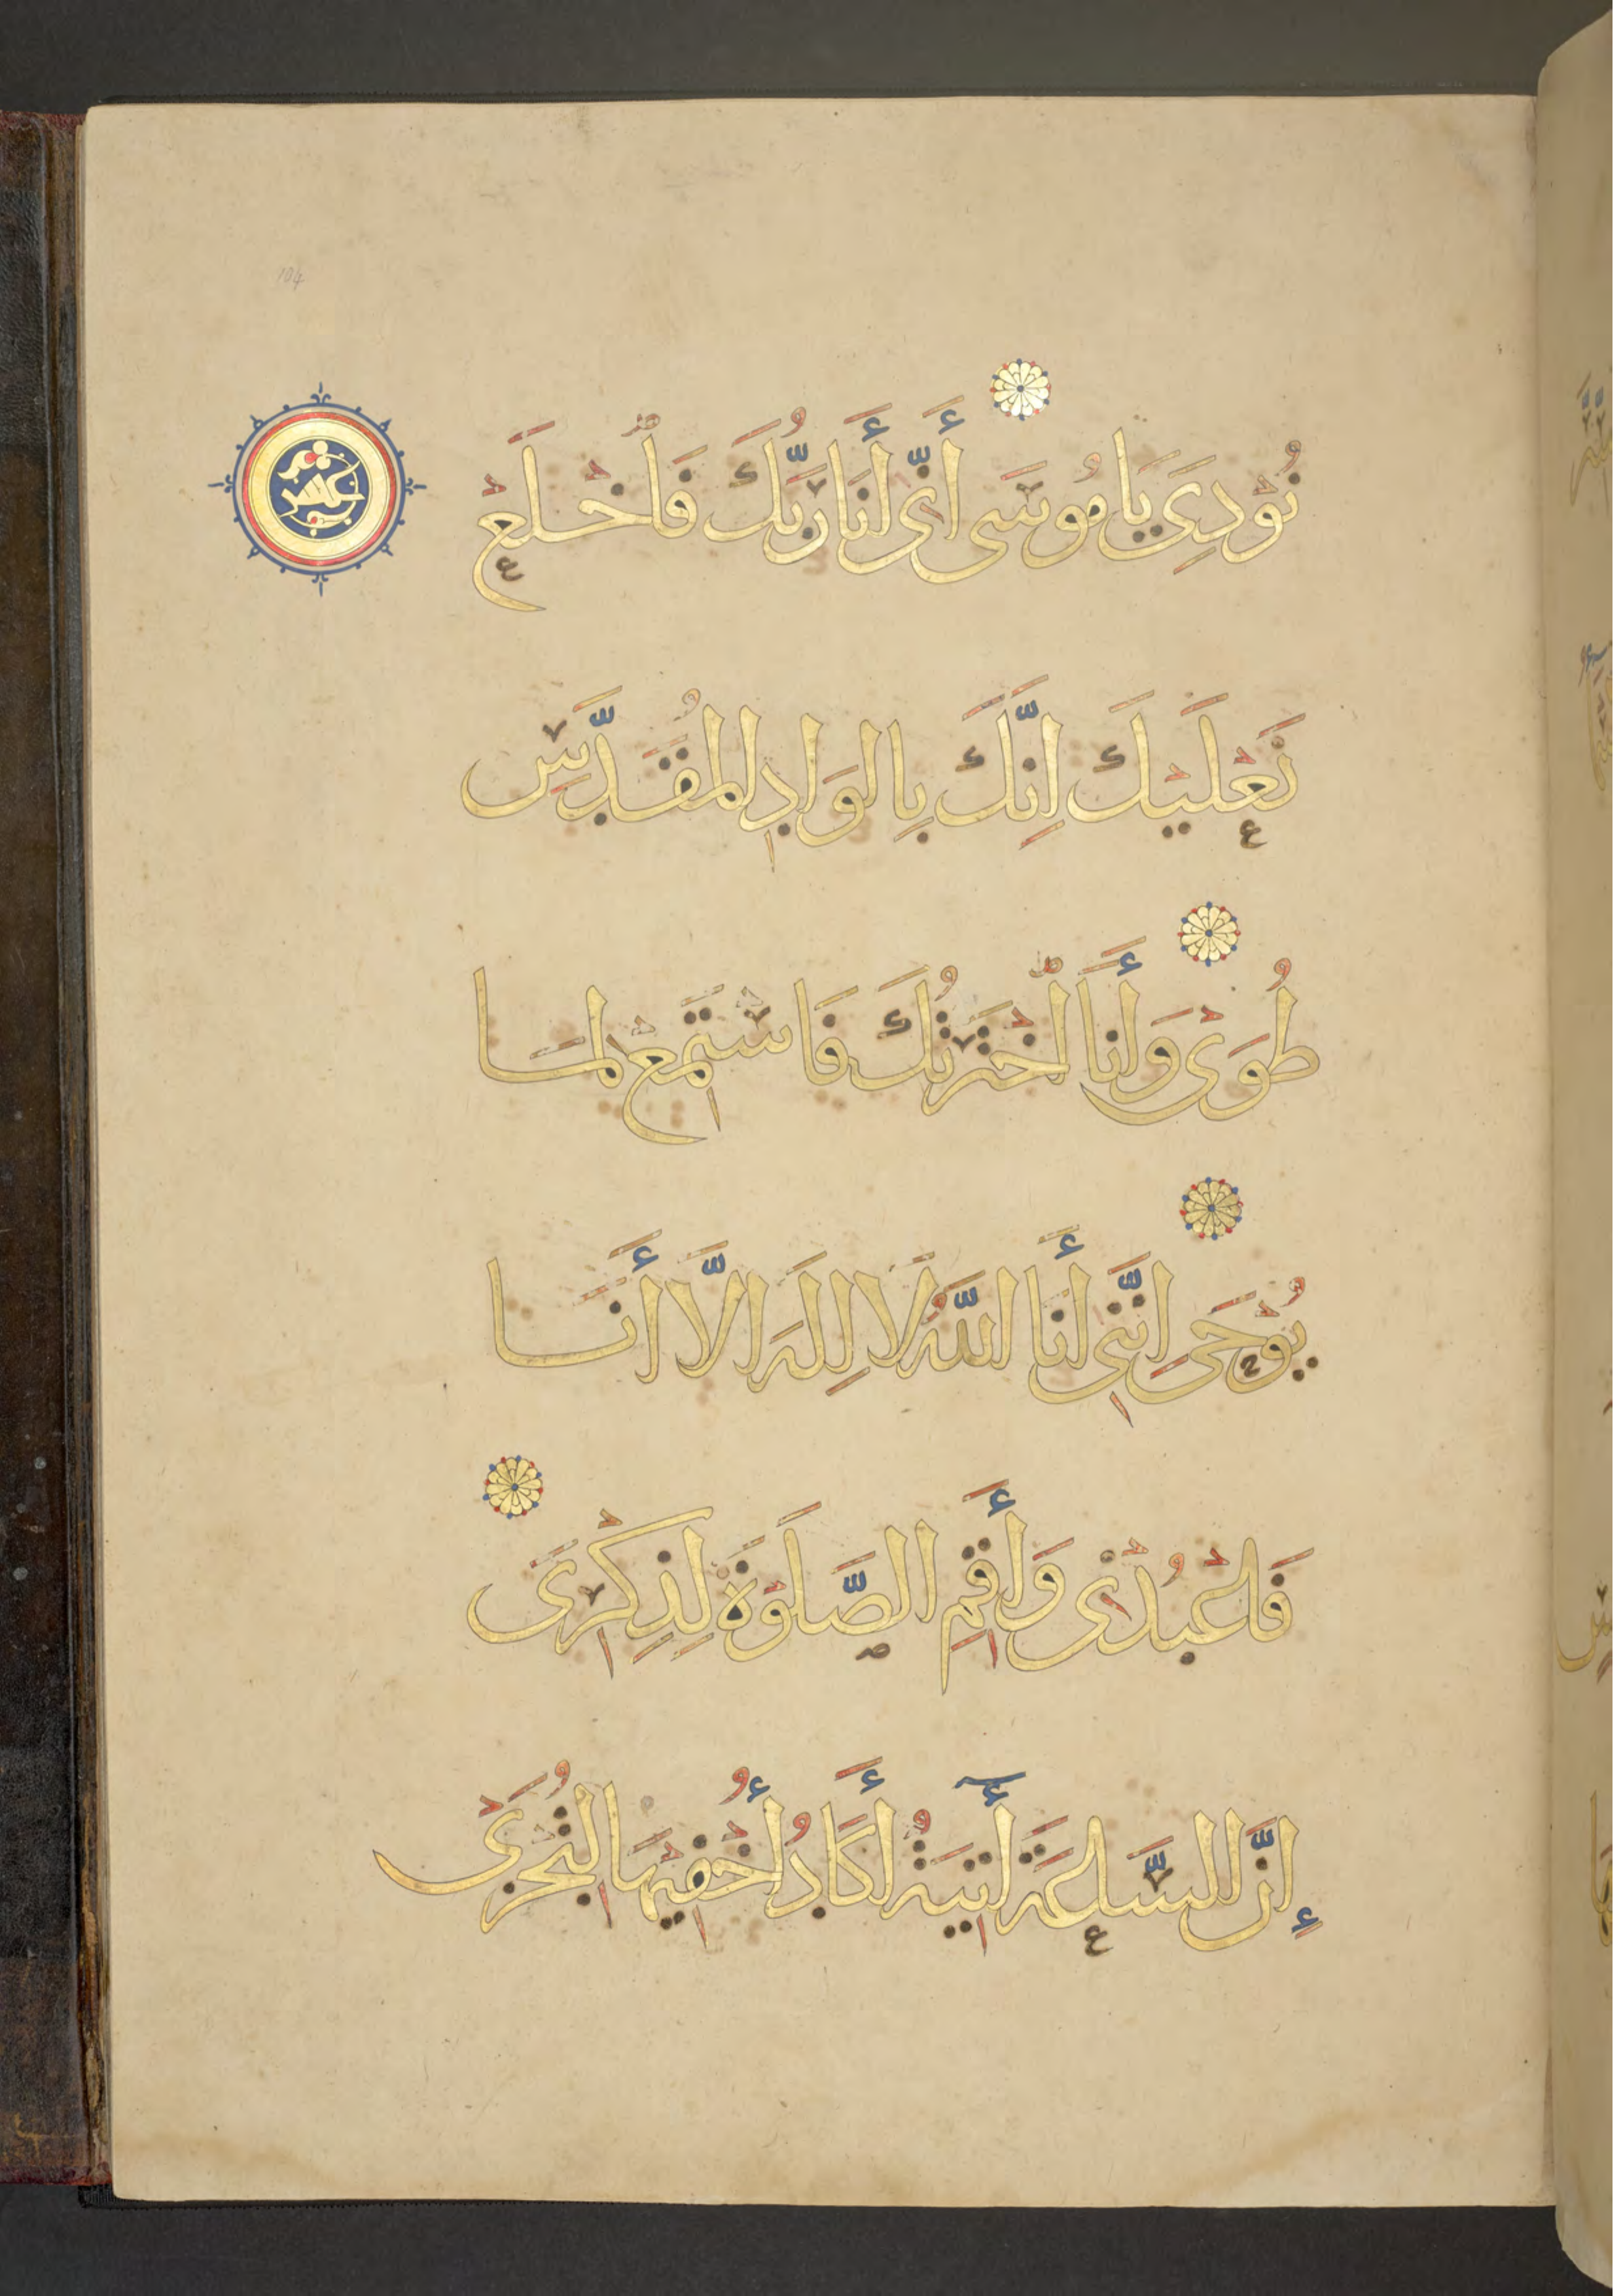 نُودِىَ يَا مُوسَى أَنِّى أَنَا رَبُّكَ فَاخْلَعْ
نَعْلَيْكَ اِنَّكَ بِالوَادِ المُقَدَّسِ
طُوَى وَأَنَا اخْتَرْتُكَ فَاسْتَمِعْ لِمَا
يُوْحَى اِنَّنِى أَنَا اللَّهُ لَا اِلَهَ الَّا أَنَا
فَاعْبُدْنِى وَأَقِمِ الصَّلَوةَ لِذِكْرِى
إِنَّ السَّاعَةَ أَتِيَةٌ أَكَادُ أُخْفِيهَا لِتُجْزَى
104